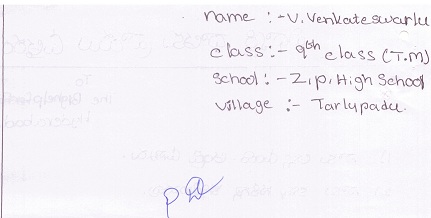 name :- V. Venkateswarlu
class :- 9th class (T.M)
school :- Z.P. High School
village :- Tarlupadu.